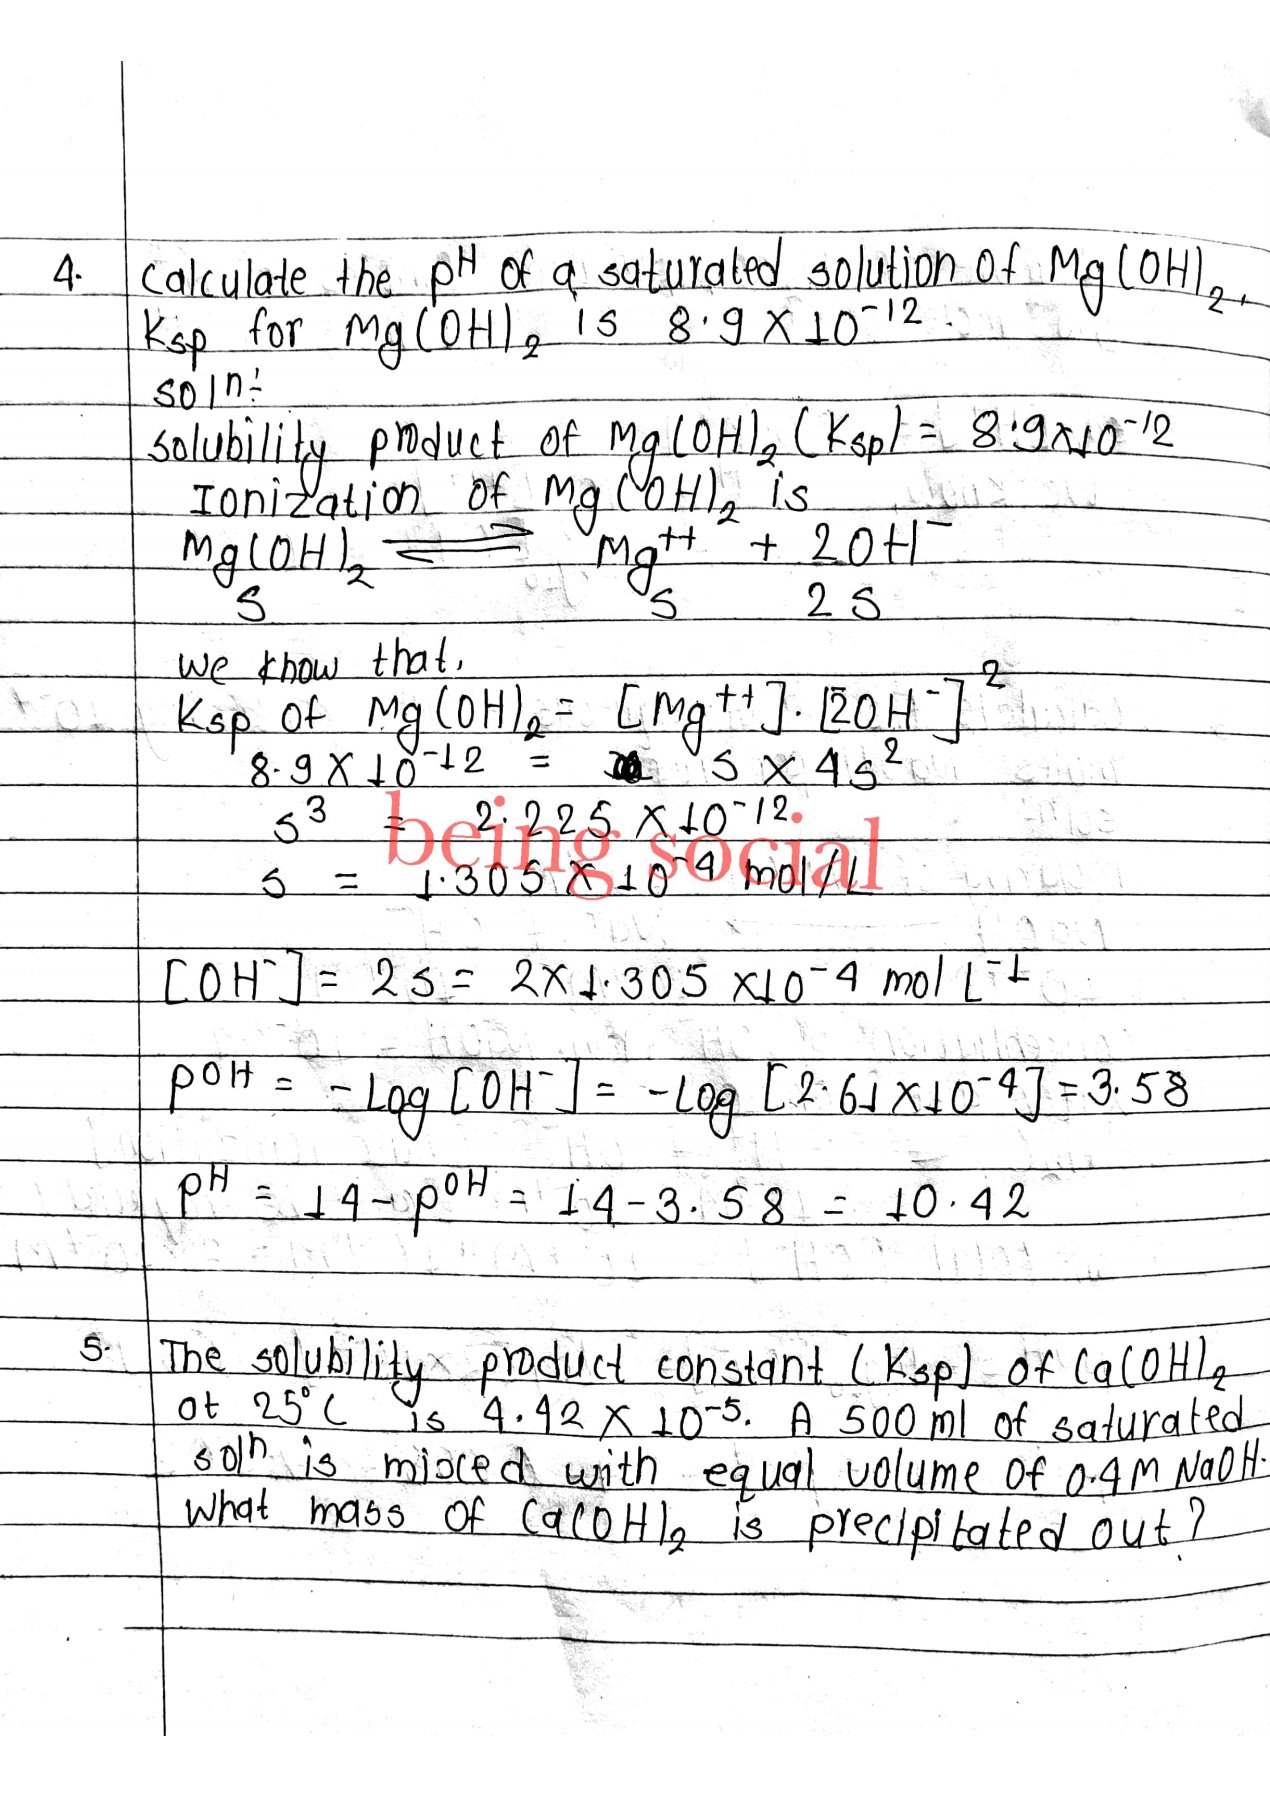 4. Calculate the pH of a saturated solution of Mg(OH)₂.
Ksp for Mg(OH)₂ is 8.9 × 10⁻¹².
soln:
solubility product of Mg(OH)₂ (Ksp) = 8.9×10⁻¹²
Ionization of Mg(OH)₂ is
Mg(OH)₂ ⇌ Mg⁺⁺ + 2OH⁻
s s 2s
we know that,
Ksp of Mg(OH)₂ = [Mg⁺⁺]. [2OH⁻]²
8.9 × 10⁻¹² = s × 4s²
s³ = 2.225 × 10⁻¹²
being social
s = 1.305 × 10⁻⁴ mol/L
[OH⁻] = 2s = 2×1.305 ×10⁻⁴ mol L⁻¹
pOH = -Log [OH⁻] = -Log [2.61×10⁻⁴] = 3.58
pH = 14 - pOH = 14 - 3.58 = 10.42
5. The solubility product constant (Ksp) of Ca(OH)₂
at 25°C is 4.42 × 10⁻⁵. A 500 ml of saturated
solⁿ is mixed with equal volume of 0.4M NaOH.
What mass of Ca(OH)₂ is precipitated out?